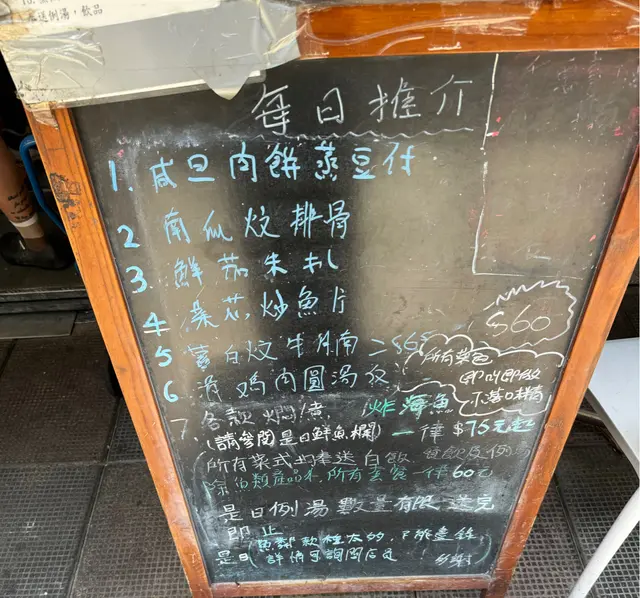 座送例湯，飲品
每日推介
1. 咸旦肉餅蒸豆付
2 南瓜炆排骨
3. 鮮茄朱扒
4 菜芯炒魚片
$60
5 蘿白炆牛腩 $65
所有菜色
即叫即做
不落味精
6 滑鸡肉圓湯
7. 各款焗煮 炸海魚
(請參閱是日鮮魚欄) 一律 $75元起
所有菜式均奉送白飯
除魚類產品外,所有套餐一律60元
是日例湯數量有限 送完
即止
是日
詳情可詢問店